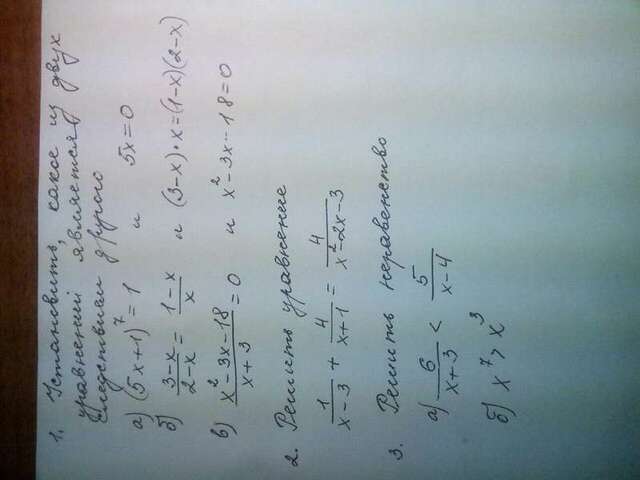 1. Установить, какое из двух
уравнений является
следствием другого
а) (5x+1)^7 = 1 и 5x=0
б) \frac{3-x}{2-x} = \frac{1-x}{x} и (3-x)·x=(1-x)(2-x)
в) \frac{x^2-3x-18}{x+3} = 0 и x^2-3x-18=0
2. Решить уравнение
\frac{1}{x-3} + \frac{4}{x+1} = \frac{4}{x^2-2x-3}
3. Решить неравенство
а) \frac{6}{x+3} < \frac{5}{x-4}
б) x^7 > x^3